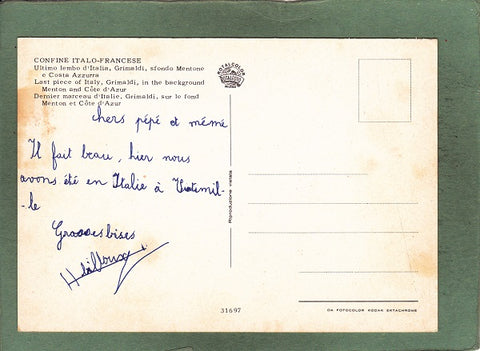 CONFINE ITALO-FRANCESE
Ultimo lembo d'Italia, Grimaldi, sfondo Mentone
e Costa Azzurra
Last piece of Italy, Grimaldi, in the background
Menton and Côte d'Azur
Dernier marceau d'Italie, Grimaldi, sur le fond
Menton et Côte d'Azur
ROTALCOLOR
chers pépé et mémé
Il fait beau, hier nous
avons été en Italie à Vintimil-
-le
Grosses bises
Riproduzione vietata
31697
DA FOTOCOLOR KODAK EKTACHROME